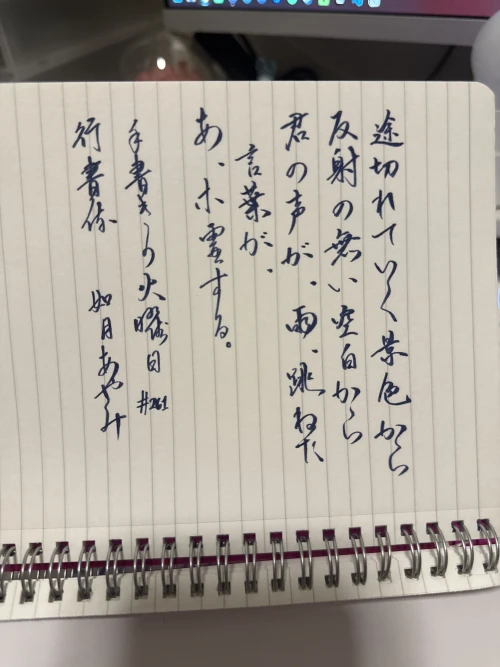 途切れていく景色から
反射の無い空白から
君の声が、雨、跳ねた
言葉が、
あ、木霊する。
手書きの火曜日 #261
行書体 如月あやみ